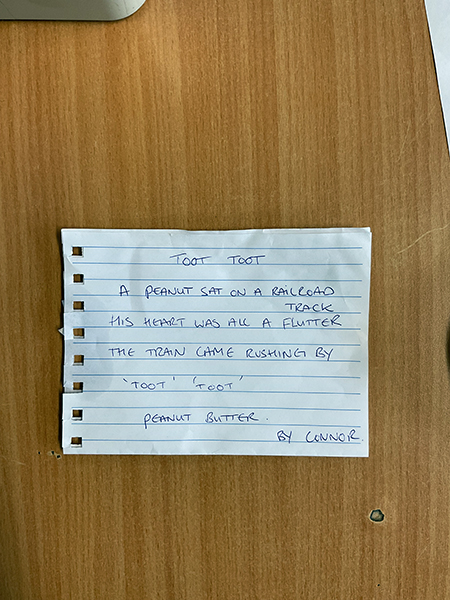 TOOT TOOT
A PEANUT SAT ON A RAILROAD
TRACK
HIS HEART WAS ALL A FLUTTER
THE TRAIN CAME RUSHING BY
'TOOT' 'TOOT'
PEANUT BUTTER.
BY CONNOR.